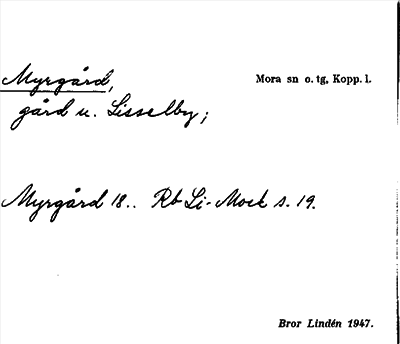 Myrgård,
Mora sn o. tg, Kopp. l.
gård u. Lisselby;
Myrgård 18.. Rb Li-Mock s. 19.
Bror Lindén 1947.